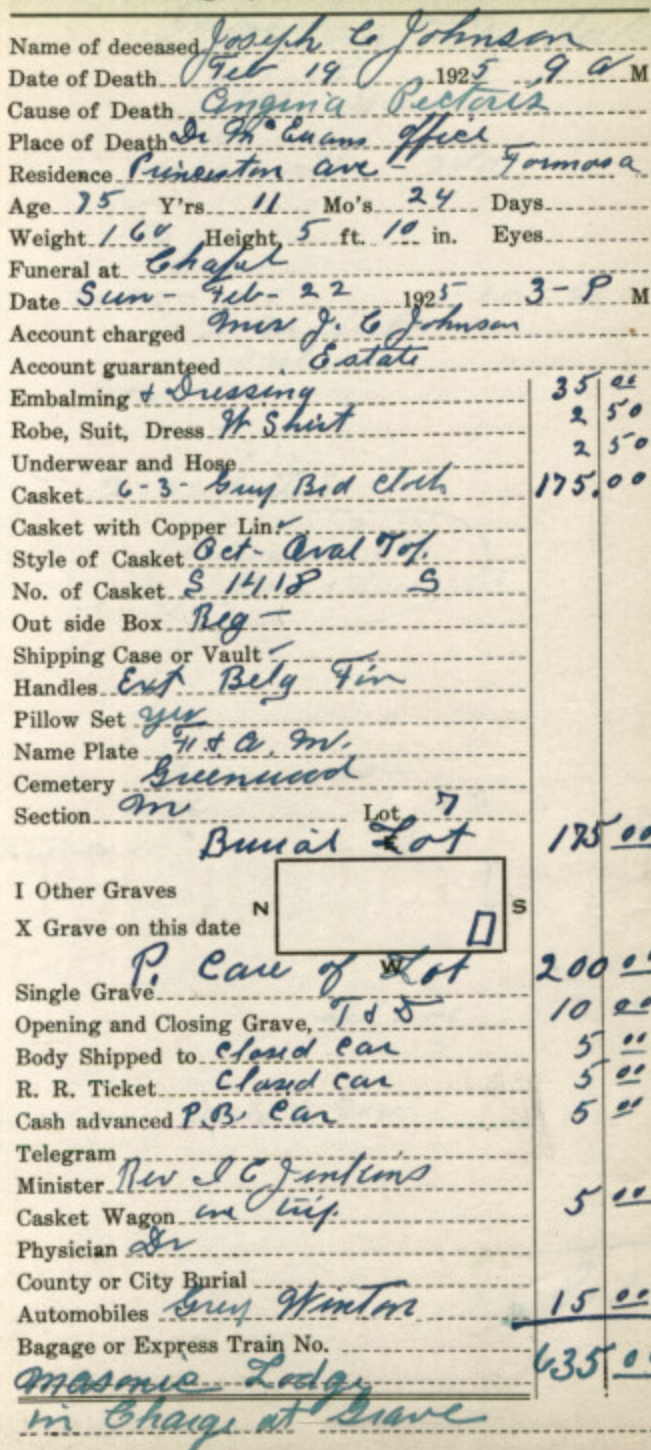 Name of deceased Joseph C Johnson
Date of Death Feb 19 1925 9 a M
Cause of Death Angina Pectoris
Place of Death Dr McEwans office
Residence Princeton ave - Formosa
Age 75 Y'rs 11 Mo's 24 Days
Weight 160 Height 5 ft. 10 in. Eyes
Funeral at Chapel
Date Sun - Feb - 22 1925 3 - P M
Account charged Mrs J. C Johnson
Account guaranteed Estate
Embalming & Dressing 35 00
Robe, Suit, Dress W Shirt 2 50
Underwear and Hose 2 50
Casket 6-3- Grey Brd Cloth 175.00
Casket with Copper Lin.
Style of Casket Oct - Oval Top.
No. of Casket S 1418 S
Out side Box Reg -
Shipping Case or Vault -
Handles Ext Belg Fin
Pillow Set yes
Name Plate F & A. M.
Cemetery Greenwood
Section M Lot 7
Burial Lot 175 00
E
I Other Graves
N S
X Grave on this date
W
P. Care of Lot 200 00
Single Grave
Opening and Closing Grave, T & D 10 00
Body Shipped to Closed Car 5 00
R. R. Ticket Closed car 5 00
Cash advanced P.B. Car 5 00
Telegram
Minister Rev I C Jenkins
Casket Wagon one trip. 5 00
Physician Dr
County or City Burial
Automobiles Grey Winton 15 00
Bagage or Express Train No. 635 00
Masonic Lodge
in Charge at Grave